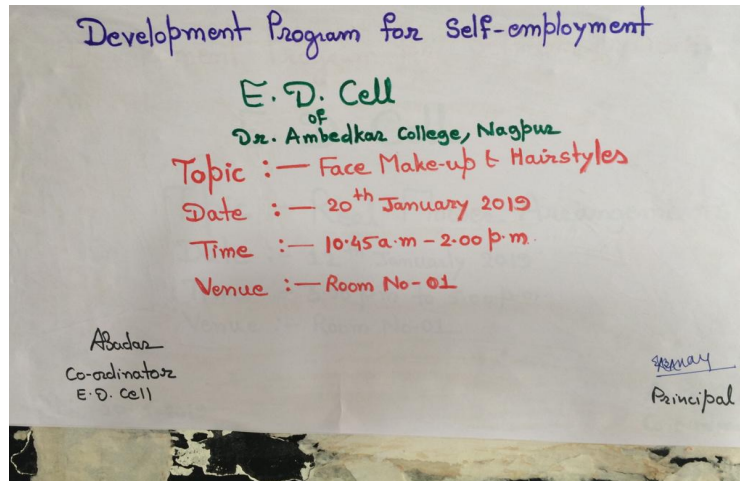 Development Program for Self-employment
E. D. Cell
of
Dr. Ambedkar College, Nagpur
Topic :- Face Make-up & Hairstyles
Date :- 20th January 2019
Time :- 10.45 a.m - 2.00 p.m.
Venue :- Room No-01
Co-ordinator
E.D. Cell
Principal